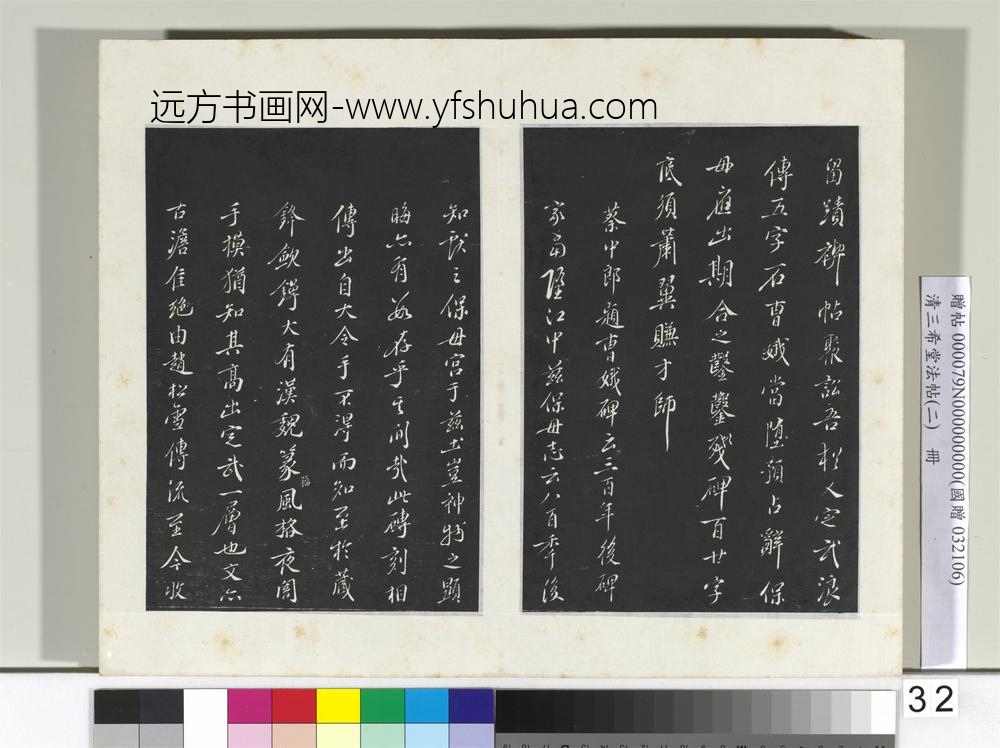 远方书画网-www.yfshuhua.com
留蹟禊帖聚訟吾於人定武浪
傳五字石曹娥當墮預占辭保
母應出期合之鑿鑿殘碑百廿字
底須蕭翼賺才師
蔡中郎題曹娥碑云三百年後碑
冢當墮江中茲保母志云八百年後
知獻之保母宮于茲土豈神物之顯
晦亦有數存乎其間哉此磚刻相
傳出自大令手不得而知至於藏
鋒斂鍔大有漢魏篆籀風格夜闇
手摸猶知其高出定武一層也文亦
古澹佳絕由趙松雪傳流至今收
贈帖 000079N000000000(國贈 032106)
清三希堂法帖(二) 冊
32